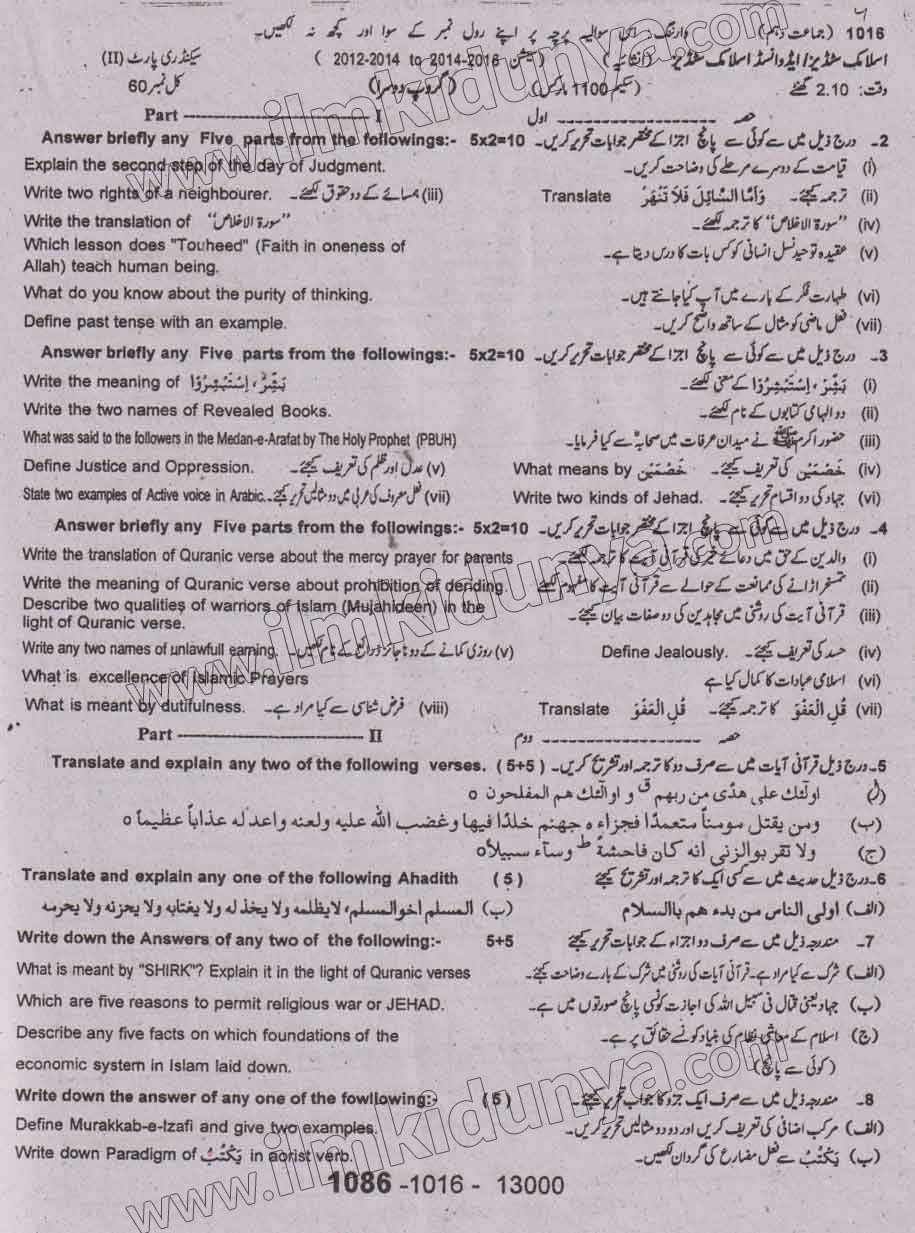 1016 (جماعت دہم) وارننگ۔ اس سوالیہ پرچہ پر اپنے رول نمبر کے سوا اور کچھ نہ لکھیں۔
اسلامک سٹڈیز/ایڈوانسڈ اسلامک سٹڈیز (انشائیہ) (سیشن 2014-2016 to 2012-2014) سیکنڈری پارٹ (II)
وقت: 2.10 گھنٹے (سکیم 1100 مارکس) (گروپ دوسرا) کل نمبر 60
Part ----------------------- I حصہ ------------------- اول
Answer briefly any Five parts from the followings:- 5x2=10 2۔ درج ذیل میں سے کوئی سے پانچ اجزا کے مختصر جوابات تحریر کریں۔
Explain the second step of the day of Judgment. (i) قیامت کے دوسرے مرحلے کی وضاحت کریں۔
Write two rights of a neighbourer. (iii) ہمسائے کے دو حقوق لکھئے۔ Translate (ii) ترجمہ کیجئے۔ وَاَمَّا السَّائِلَ فَلَا تَنْهَرْ
Write the translation of "سورۃ الاخلاص" (iv) "سورۃ الاخلاص" کا ترجمہ لکھئے۔
Which lesson does "Touheed" (Faith in oneness of (v) عقیدہ توحید نسل انسانی کو کس بات کا درس دیتا ہے۔
Allah) teach human being.
What do you know about the purity of thinking. (vi) طہارت فکر کے بارے میں آپ کیا جانتے ہیں۔
Define past tense with an example. (vii) فعل ماضی کو مثال کے ساتھ واضح کریں۔
Answer briefly any Five parts from the followings:- 5x2=10 3۔ درج ذیل میں سے کوئی سے پانچ اجزا کے مختصر جوابات تحریر کریں۔
Write the meaning of بَشِّرْ، اِسْتَبْشِرُوْا (i) بَشِّرْ، اِسْتَبْشِرُوْا کے معنی لکھئے۔
Write the two names of Revealed Books. (ii) دو الہامی کتابوں کے نام لکھئے۔
What was said to the followers in the Medan-e-Arafat by The Holy Prophet (PBUH) (iii) حضور اکرمﷺ نے میدان عرفات میں صحابہؓ سے کیا فرمایا۔
Define Justice and Oppression. (v) عدل اور ظلم کی تعریف کیجئے۔ What means by خَصْمَيْن (iv) خَصْمَيْن کی تعریف کیجئے۔
State two examples of Active voice in Arabic. (vii) فعل معروف کی عربی میں دو مثالیں تحریر کیجئے۔ Write two kinds of Jehad. (vi) جہاد کی دو اقسام تحریر کیجئے۔
Answer briefly any Five parts from the followings:- 5x2=10 4۔ درج ذیل میں سے کوئی سے پانچ اجزا کے مختصر جوابات تحریر کریں۔
Write the translation of Quranic verse about the mercy prayer for parents (i) والدین کے حق میں دعائے خیر کی قرآنی آیت کا ترجمہ لکھئے۔
Write the meaning of Quranic verse about prohibition of deriding. (ii) تمسخر اڑانے کی ممانعت کے حوالے سے قرآنی آیت کا مفہوم لکھئے
Describe two qualities of warriors of Islam (Mujahideen) in the (iii) قرآنی آیت کی روشنی میں مجاہدین کی دو صفات بیان کیجئے۔
light of Quranic verse.
Write any two names of unlawfull earning. (v) روزی کمانے کے دو ناجائز ذرائع کے نام لکھیں۔ Define Jealously. (iv) حسد کی تعریف کیجئے۔
What is excellence of Islamic Prayers (vi) اسلامی عبادات کا کمال کیا ہے
What is meant by dutifulness. (viii) فرض شناسی سے کیا مراد ہے۔ Translate قُلِ الْعَفْوَ (vii) قُلِ الْعَفْوَ کا ترجمہ کیجئے۔
Part ----------------------- II حصہ ------------------- دوم
Translate and explain any two of the following verses. (5+5) 5۔ درج ذیل قرآنی آیات میں سے صرف دو کا ترجمہ اور تشریح کریں۔
(ا) اولٰئک علی ھدًی من ربھم ق و اولٰئک ھم المفلحون o
(ب) ومن یقتل مومناً متعمدًا فجزاء ہ جھنم خلدًا فیھا وغضب اللہ علیہ ولعنہ واعد لہ عذاباً عظیماً o
(ج) ولا تقر بوالزنی انہ کان فاحشۃً ط وسآء سبیلاً o
Translate and explain any one of the following Ahadith (5) 6۔ درج ذیل حدیث میں سے کسی ایک کا ترجمہ اور تشریح کیجئے
(الف) اولی الناس من بدء ھم باالسلام (ب) المسلم اخوالمسلم، لایظلمہ ولا یخذلہ ولا یغتابہ ولا یحزنہ ولا یحرمہ
Write down the Answers of any two of the following:- 5+5 7۔ مندرجہ ذیل میں سے صرف دو اجزاء کے جوابات تحریر کیجئے
What is meant by "SHIRK"? Explain it in the light of Quranic verses (الف) شرک سے کیا مراد ہے۔ قرآنی آیات کی روشنی میں شرک کے بارے وضاحت کیجئے۔
Which are five reasons to permit religious war or JEHAD. (ب) جہاد یعنی قتال فی سبیل اللہ کی اجازت کونسی پانچ صورتوں میں ہے۔
Describe any five facts on which foundations of the (ج) اسلام کے معاشی نظام کی بنیاد کونسے حقائق پر ہے۔
economic system in Islam laid down. (کوئی سے پانچ)
Write down the answer of any one of the fowllowing:- (5) 8۔ مندرجہ ذیل میں سے صرف ایک جزو کا جواب تحریر کیجئے۔
Define Murakkab-e-Izafi and give two examples. (الف) مرکب اضافی کی تعریف کریں اور دو دو مثالیں تحریر کریں۔
Write down Paradigm of يَكْتُبُ in aorist verb. (ب) يَكْتُبُ سے فعل مضارع کی گردان لکھیں۔
1086 -1016 - 13000
www.ilmkidunya.com
www.ilmkidunya.com
www.ilmkidunya.com